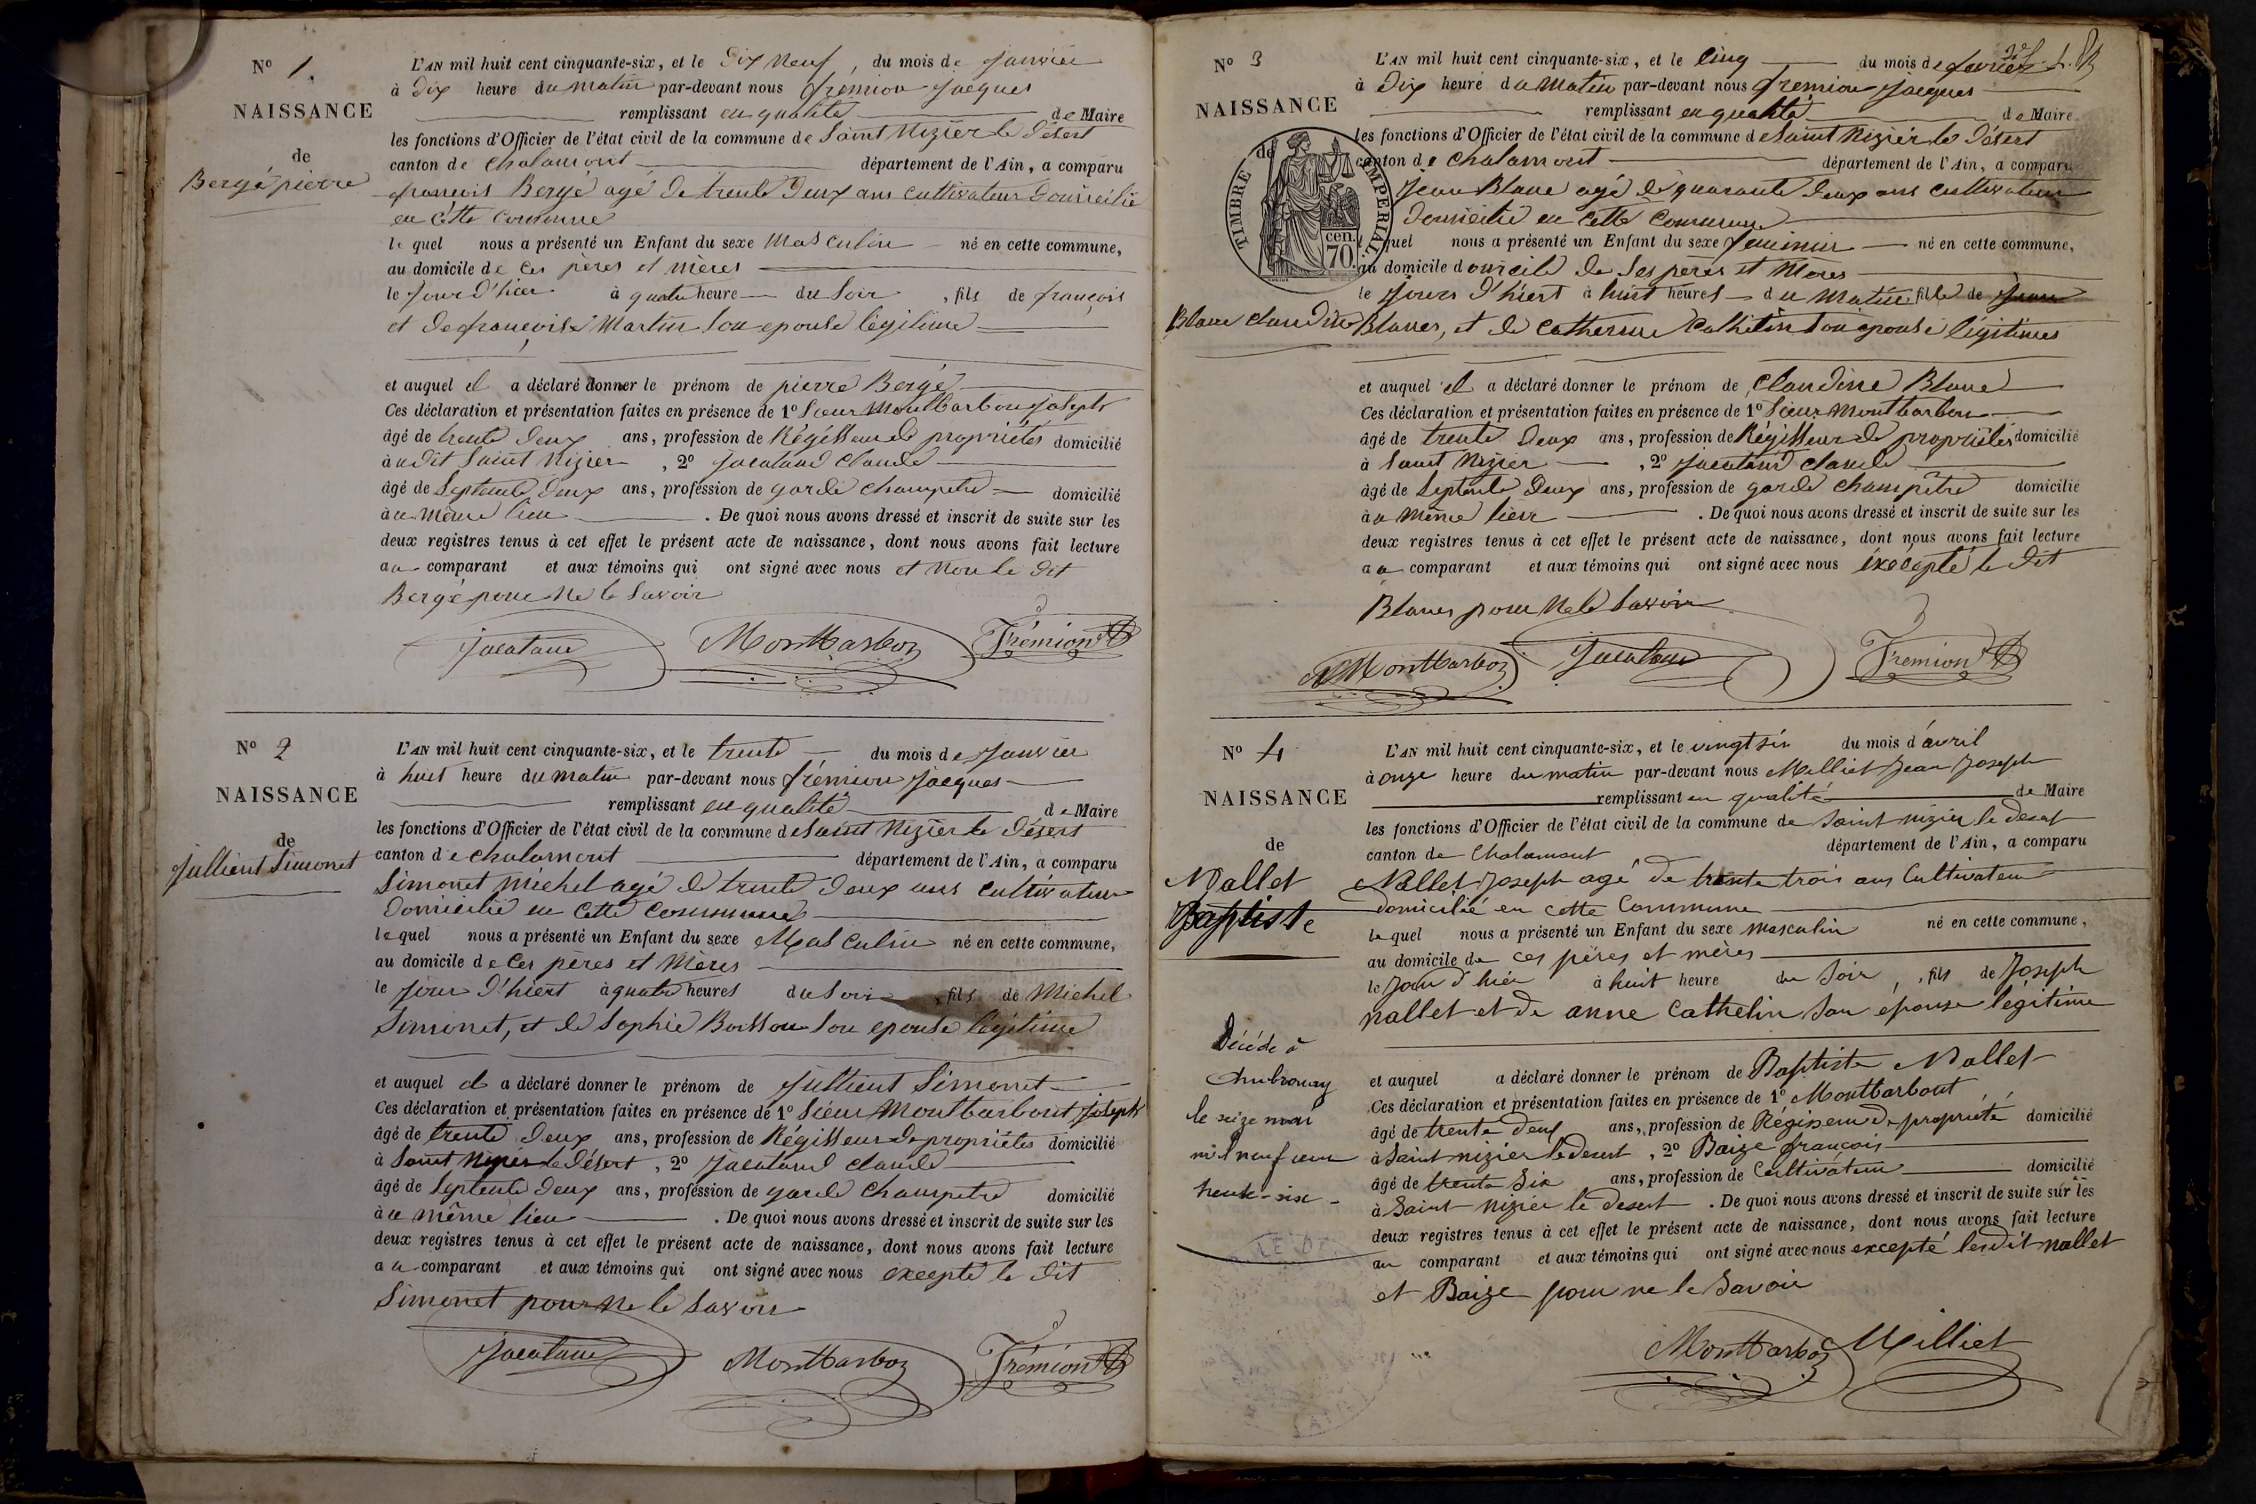 N° 1.
NAISSANCE
de
Bergé pierre
L'AN mil huit cent cinquante-six, et le Dix Neuf, du mois de Janvier
à Dix heure du matin par-devant nous frémion Jacques
remplissant en qualité de Maire
les fonctions d'Officier de l'état civil de la commune de Saint Nizier le Désert
canton de Chalamont département de l'Ain, a comparu
françois Bergé agé de trente Deux ans cultivateur Domicilié
en cette commune
le quel nous a présenté un Enfant du sexe Masculin né en cette commune,
au domicile de Ces pères et Mères
le Jour d'hier à quatre heure du Soir, fils de françois
et de françoise Martin son epouse légitime
et auquel il a déclaré donner le prénom de pierre Bergé
Ces déclaration et présentation faites en présence de 1° Sieur Montbarbon Joseph
âgé de trente Deux ans, profession de Régisseur de propriétés domicilié
à udit Saint Nizier, 2° Jacataud Claude
âgé de Septente Deux ans, profession de garde Champetre domicilié
à u Même lieu. De quoi nous avons dressé et inscrit de suite sur les
deux registres tenus à cet effet le présent acte de naissance, dont nous avons fait lecture
au comparant et aux témoins qui ont signé avec nous et Non le Dit
Bergé pour Ne le Savoir
Jacataud Montbarbon Frémion
N° 2
NAISSANCE
de
Jullient Simonet
L'AN mil huit cent cinquante-six, et le trente du mois de Janvier
à huit heure du Matin par-devant nous frémion Jacques
remplissant en qualité de Maire
les fonctions d'Officier de l'état civil de la commune de Saint Nizier le Désert
canton de Chalamont département de l'Ain, a comparu
Simonet Michel agé de trente Deux ans Cultivateur
Domicilié en Cette Commune
le quel nous a présenté un Enfant du sexe Masculin né en cette commune,
au domicile de Ces pères et Mères
le Jour d'hiert à quatre heures du Soir, fils de Michel
Simonet, et de Sophie Boisson Son epouse légitime
et auquel il a déclaré donner le prénom de Jullient Simonet
Ces déclaration et présentation faites en présence de 1° Sieur Montbarbont Joseph
âgé de trente Deux ans, profession de Régisseur de propriétés domicilié
à Saint Nizier le Désert, 2° Jacataud Claude
âgé de Septente Deux ans, profession de garde Champetre domicilié
à u même lieu. De quoi nous avons dressé et inscrit de suite sur les
deux registres tenus à cet effet le présent acte de naissance, dont nous avons fait lecture
au comparant et aux témoins qui ont signé avec nous excepté le Dit
Simonet pour Ne le Savoir
Jacataud Montbarbon Frémion
N° 3
NAISSANCE
de
TIMBRE IMPERIAL
cen.
70.
Blanc Claudine
L'AN mil huit cent cinquante-six, et le Cinq du mois de fevrier
à Dix heure du Matin par-devant nous fremion Jacques
remplissant en qualité de Maire
les fonctions d'Officier de l'état civil de la commune de Saint Nizier le Désert
canton de Chalamont département de l'Ain, a comparu
Jean Blanc agé de quarante Deux ans Cultivateur
Domicilié en Cette Commune
quel nous a présenté un Enfant du sexe feminin né en cette commune,
au domicile domicile de Ses pères et Mères
le Jour d'hiert à huit heures du Matin fille de Jean
Blanc, et de Catherine Cathelin Son epouse légitimes
et auquel il a déclaré donner le prénom de Claudine Blanc
Ces déclaration et présentation faites en présence de 1° Sieur Montbarbon
âgé de trente Deux ans, profession de Régisseur de propriétés domicilié
à Saint Nizier, 2° Jacataud Claude
âgé de Septente Deux ans, profession de garde Champêtre domicilié
à u Même lieu. De quoi nous avons dressé et inscrit de suite sur les
deux registres tenus à cet effet le présent acte de naissance, dont nous avons fait lecture
au comparant et aux témoins qui ont signé avec nous éxcépté le Dit
Blanc pour Ne le Savoir
Montbarbon Jacataud Frémion
N° 4
NAISSANCE
de
Nallet
Baptiste
Décédé à
le seize mai
mil neuf cent
trente-six
L'AN mil huit cent cinquante-six, et le vingt six du mois d'avril
à onze heure du matin par-devant nous Milliet Jean Joseph
remplissant en qualité de Maire
les fonctions d'Officier de l'état civil de la commune de Saint nizier le desert
canton de Chalamont département de l'Ain, a comparu
Nallet Joseph agé de trente trois ans Cultivateur
domicilié en cette Commune
le quel nous a présenté un Enfant du sexe masculin né en cette commune,
au domicile de ces pères et mères
le Jour d'hier à huit heure du Soir, fils de Joseph
nallet et de anne Cathelin Son épouse légitime
et auquel a déclaré donner le prénom de Baptiste Nallet
Ces déclaration et présentation faites en présence de 1° Montbarbont
âgé de trente deux ans, profession de Régisseur de propriété domicilié
à Saint nizier le desert, 2° Baize françois
âgé de trente Six ans, profession de Cultivateur domicilié
à Saint nizier le desert. De quoi nous avons dressé et inscrit de suite sur les
deux registres tenus à cet effet le présent acte de naissance, dont nous avons fait lecture
au comparant et aux témoins qui ont signé avec nous excepté lesdit nallet
et Baize pour ne le Savoir
Montbarbon Milliet